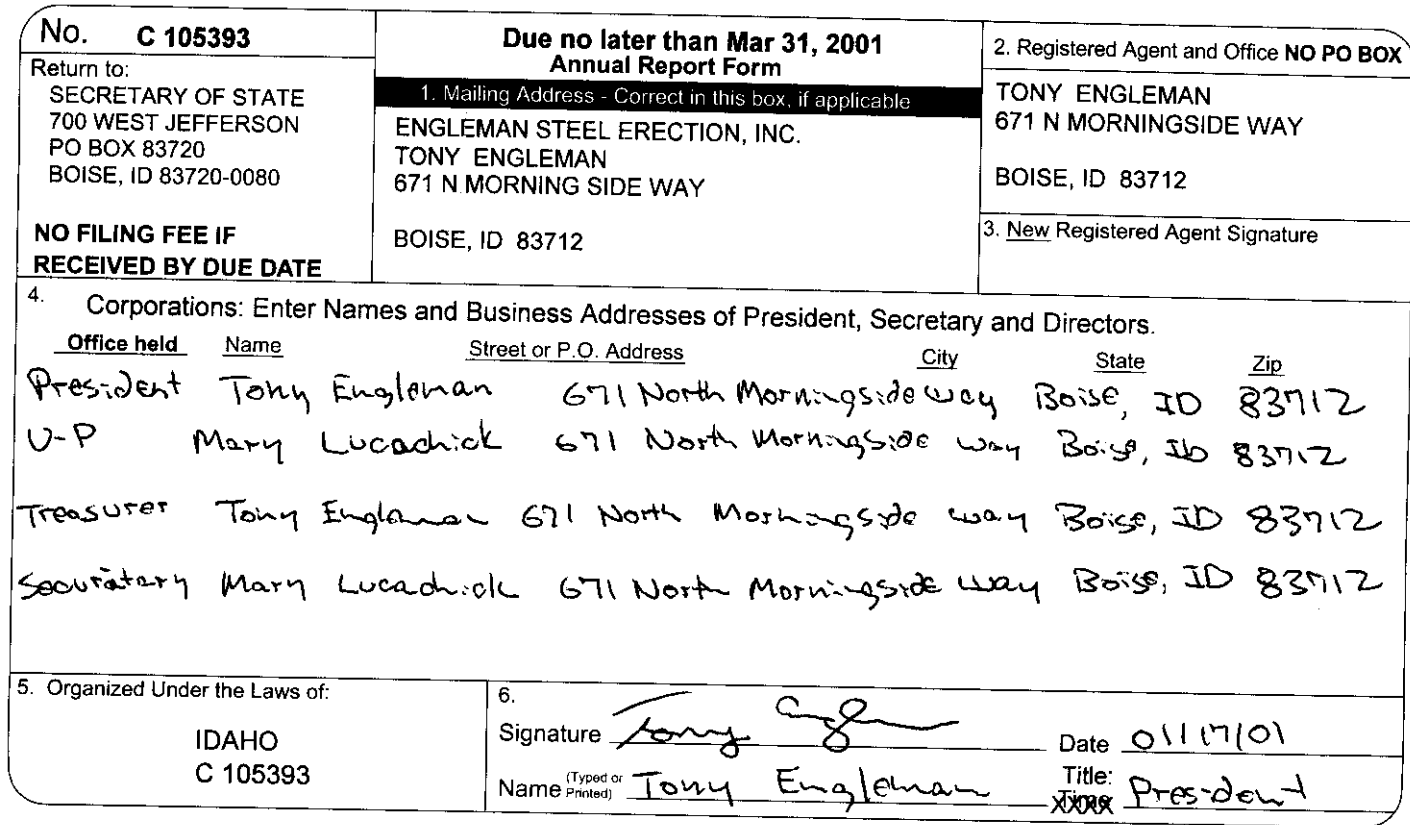 No. C 105393
Return to:
SECRETARY OF STATE
700 WEST JEFFERSON
PO BOX 83720
BOISE, ID 83720-0080
NO FILING FEE IF
RECEIVED BY DUE DATE
Due no later than Mar 31, 2001
Annual Report Form
1. Mailing Address - Correct in this box, if applicable
ENGLEMAN STEEL ERECTION, INC.
TONY ENGLEMAN
671 N MORNING SIDE WAY
BOISE, ID 83712
2. Registered Agent and Office NO PO BOX
TONY ENGLEMAN
671 N MORNINGSIDE WAY
BOISE, ID 83712
3. New Registered Agent Signature
4. Corporations: Enter Names and Business Addresses of President, Secretary and Directors.
Office held Name Street or P.O. Address City State Zip
President Tony Engleman 671 North Morningside way Boise, ID 83712
V-P Mary Lucachick 671 North Morningside way Boise, ID 83712
Treasurer Tony Engleman 671 North Morningside way Boise, ID 83712
Securatary Mary Lucachick 671 North Morningside way Boise, ID 83712
5. Organized Under the Laws of:
IDAHO
C 105393
6.
Signature Tony Engleman Date 01/17/01
Name (Typed or Printed) Tony Engleman Title: President